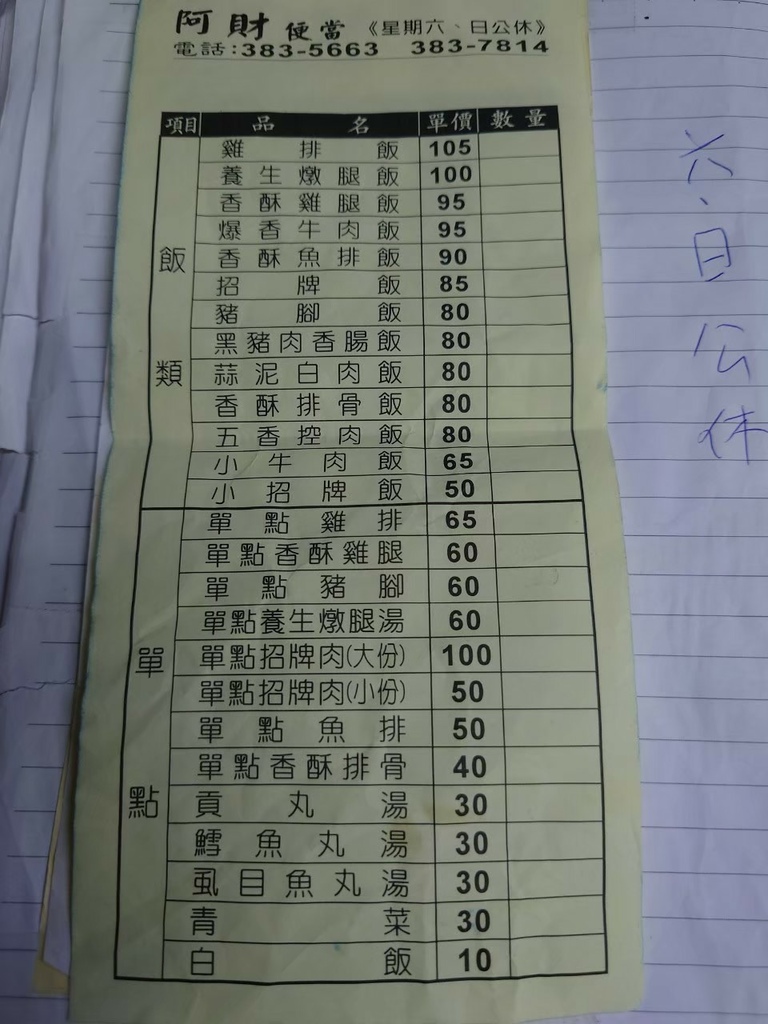 阿財便當《星期六、日公休》
電話:383-5663 383-7814
項目 品名 單價 數量
飯類
雞排飯 105
養生燉腿飯 100
香酥雞腿飯 95
爆香牛肉飯 95
香酥魚排飯 90
招牌飯 85
豬腳飯 80
黑豬肉香腸飯 80
蒜泥白肉飯 80
香酥排骨飯 80
五香控肉飯 80
小牛肉飯 65
小招牌飯 50
單點
單點雞排 65
單點香酥雞腿 60
單點豬腳 60
單點養生燉腿湯 60
單點招牌肉(大份) 100
單點招牌肉(小份) 50
單點魚排 50
單點香酥排骨 40
貢丸湯 30
鱈魚丸湯 30
虱目魚丸湯 30
青菜 30
白飯 10
六、日公休